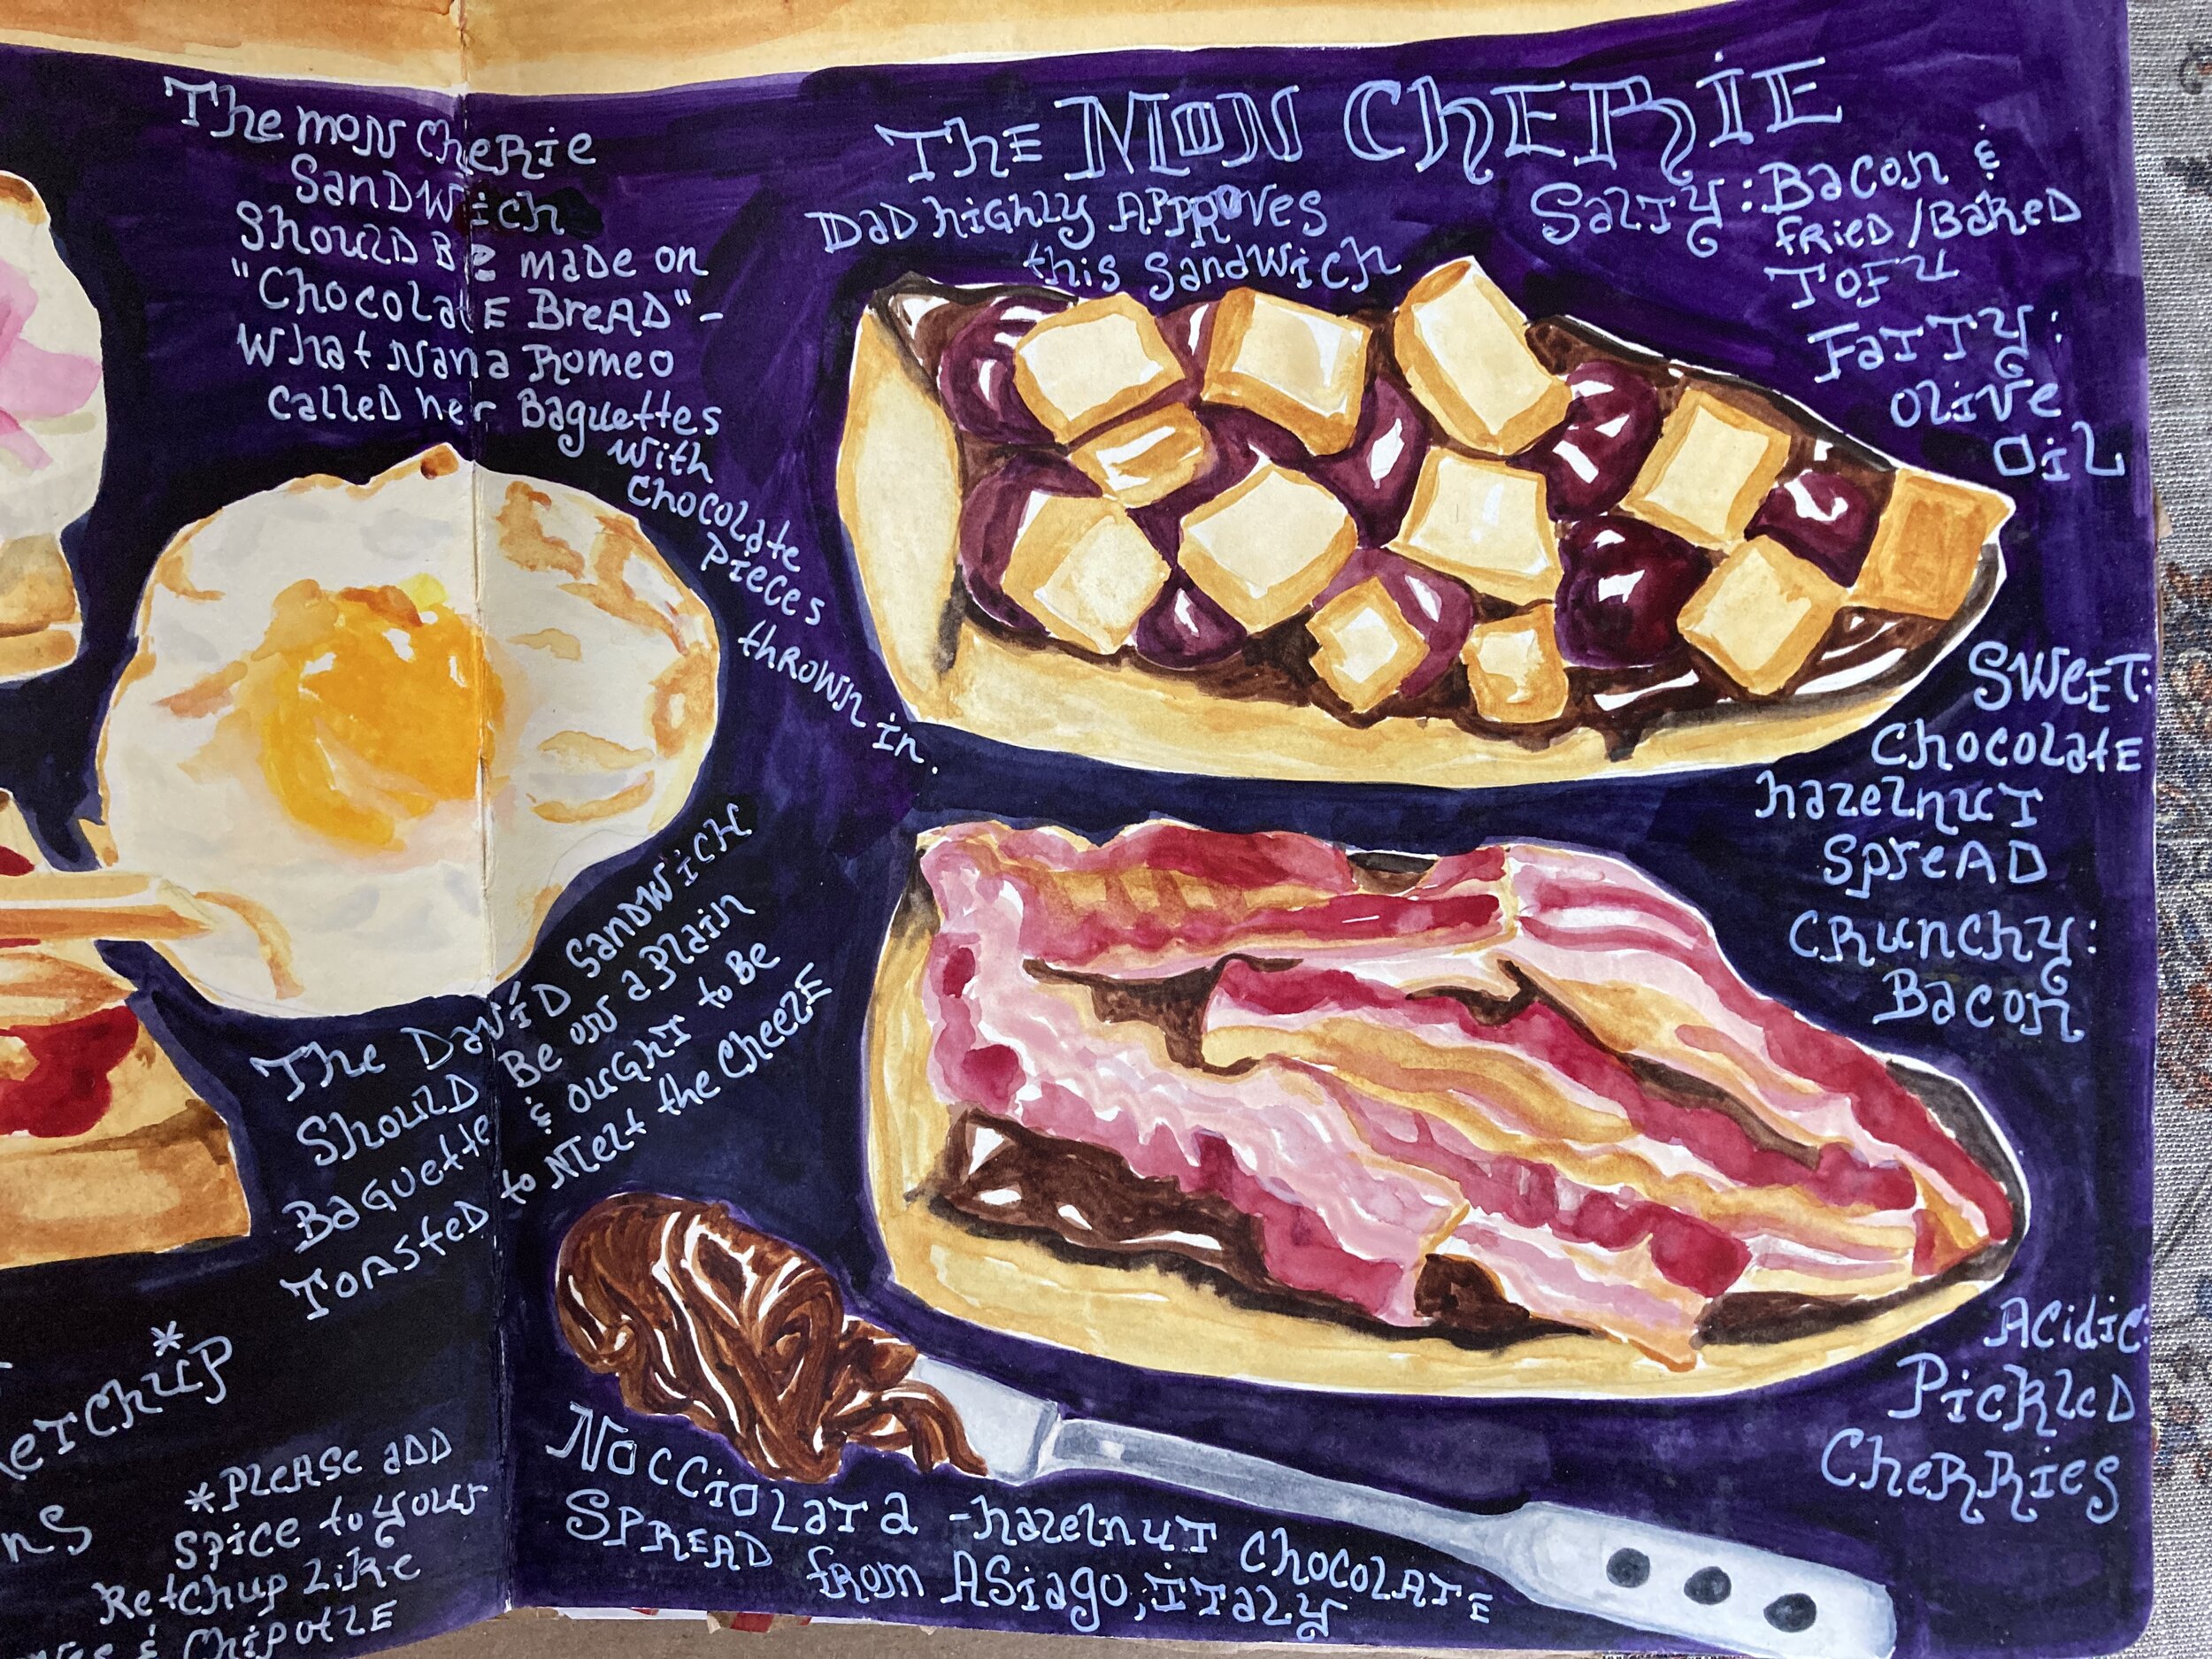 The Mon Cherie
Sandwich
Should Be made on
"Chocolate Bread"-
What Nana Romeo
called her Baguettes
with
chocolate
pieces
thrown in.
The Mon Cherie
Dad highly Approves
this Sandwich
Salty: Bacon &
fried/Baked
Tofu
Fatty:
Olive
Oil
Sweet:
Chocolate
hazelnut
Spread
Crunchy:
Bacon
Acidic:
Pickled
Cherries
The David Sandwich
Should Be on a Plain
Baguette & ought to Be
Toasted to Melt the Cheeze
Ketchup*
*Please add
spice to your
Ketchup like
& Chipotle
Nocciolata -hazelnut chocolate
Spread from Asiago, Italy